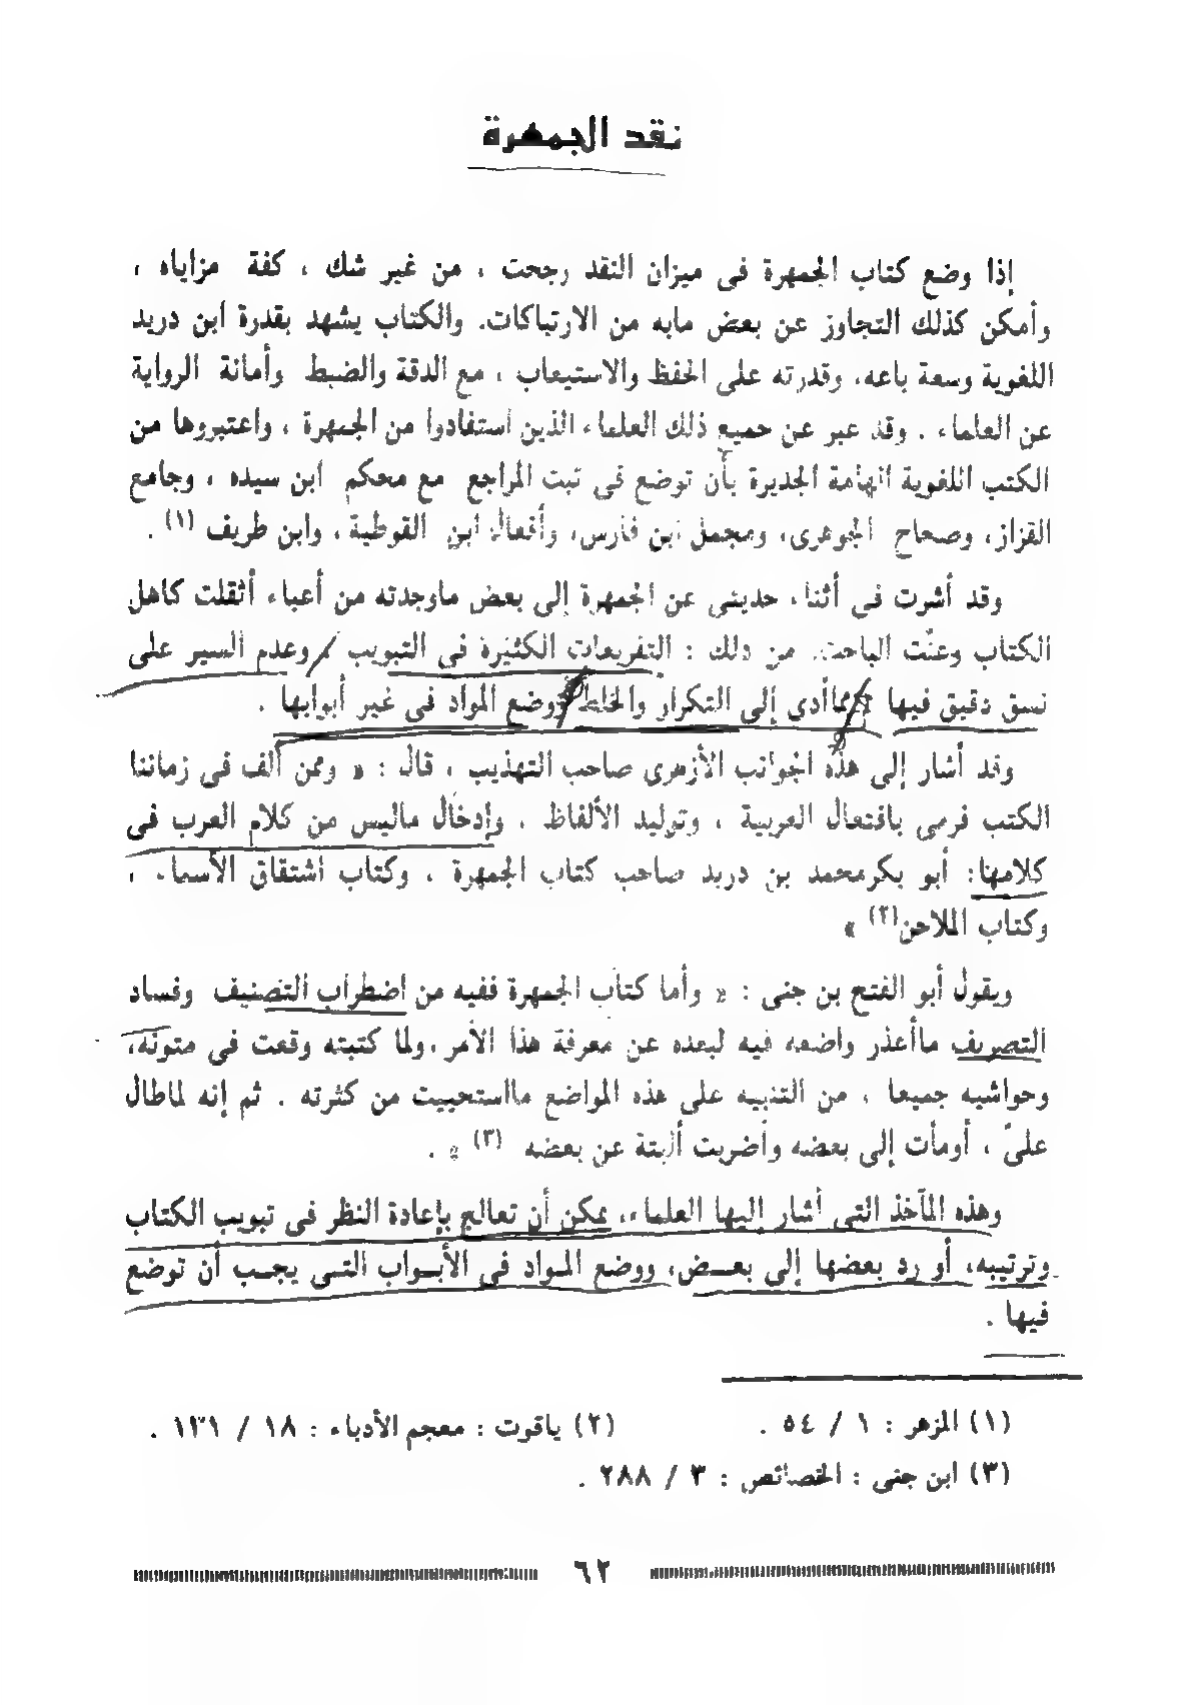 نقد الجمهرة
إذا وضع كتاب الجمهرة فى ميزان النقد رجحت ، من غير شك ، كفة مزاياه ،
وأمكن كذلك التجاوز عن بعض مابه من الارتباكات. والكتاب يشهد بقدرة ابن دريد
اللغوية وسعة باعه، وقدرته على الحفظ والاستيعاب ، مع الدقة والضبط وأمانة الرواية
عن العلماء . وقد عبر عن جميع ذلك العلماء الذين استفادوا من الجمهرة ، واعتبروها من
الكتب اللغوية الهامة الجديرة بأن توضع فى ثبت المراجع مع محكم ابن سيده ، وجامع
القزاز، وصحاح الجوهرى، ومجمل ابن فارس، وأفعال ابن القوطية ، وابن طريف (١) .
وقد أشرت فى أثناء حديثى عن الجمهرة إلى بعض ماوجدته من أعباء أثقلت كاهل
الكتاب وعنّت الباحث. من ذلك : التفريعات الكثيرة فى التبويب ، وعدم السير على
نسق دقيق فيها مماأدى إلى التكرار والخلط ووضع المواد فى غير أبوابها .
وقد أشار إلى هذه الجوانب الأزهرى صاحب التهذيب ، قال : « وممن ألف فى زماننا
الكتب فرمى بافتعال العربية ، وتوليد الألفاظ ، وإدخال ماليس من كلام العرب فى
كلامها: أبو بكرمحمد بن دريد صاحب كتاب الجمهرة ، وكتاب اشتقاق الأسماء ،
وكتاب الملاحن(٢) »
ويقول أبو الفتح بن جنى : « وأما كتاب الجمهرة ففيه من اضطراب التصنيف وفساد
التصريف ماأعذر واضعه فيه لبعده عن معرفة هذا الأمر .ولما كتبته وقعت فى متونه،
وحواشيه جميعا ، من التنبيه على هذه المواضع مااستحييت من كثرته . ثم إنه لماطال
علىّ ، أومأت إلى بعضه وأضربت ألبتة عن بعضه (٣) » .
وهذه المآخذ التى أشار إليها العلماء، يمكن أن تعالج بإعادة النظر فى تبويب الكتاب
وترتيبه، أو رد بعضها إلى بعــض، ووضع المـواد فى الأبـواب التـى يجـب أن توضع
فيها .
(١) المزهر : ١ / ٥٤ .
(٢) ياقوت : معجم الأدباء : ١٨ / ١٣١ .
(٣) ابن جنى : الخصائص : ٣ / ٢٨٨ .
٦٢